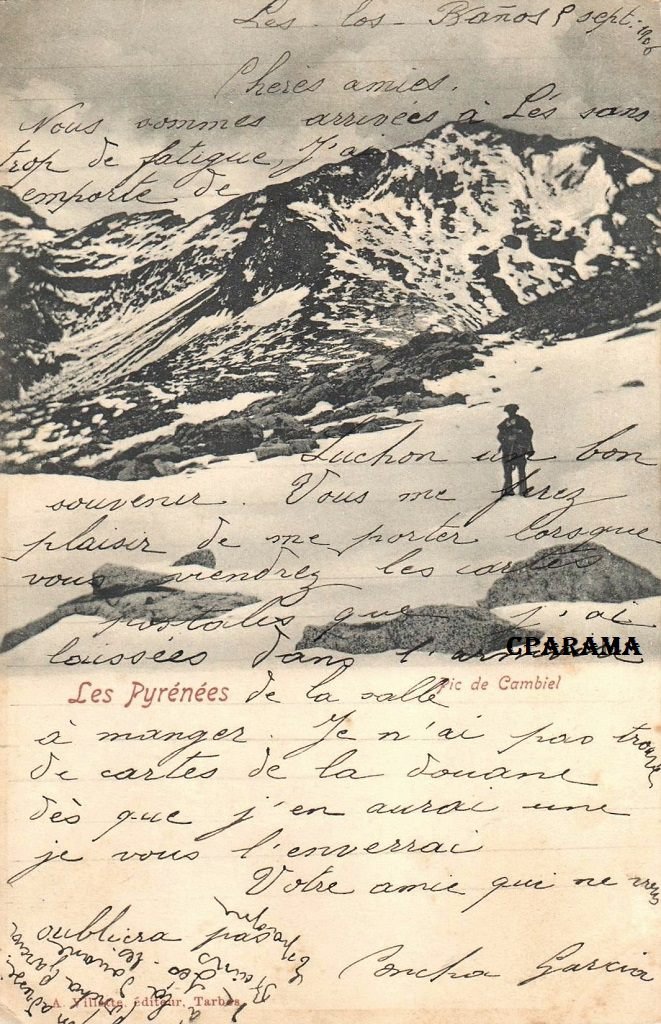 Les - los - Baños 8 sept. 1906
Chères amies.
Nous sommes arrivées à Lés sans
trop de fatigue, J'ai
emporté de
Luchon un bon
souvenir. Vous me ferez
plaisir de me porter lorsque
vous viendrez les cartes
postales que j'ai
laissées dans l'armoire
CPARAMA
Les Pyrénées Pic de Cambiel
de la salle
à manger. Je n'ai pas trouvé
de cartes de la douane
dès que j'en aurai une
je vous l'enverrai
Votre amie qui ne vous
oubliera pas
Concha Garcia
A. Villatte, éditeur, Tarbes